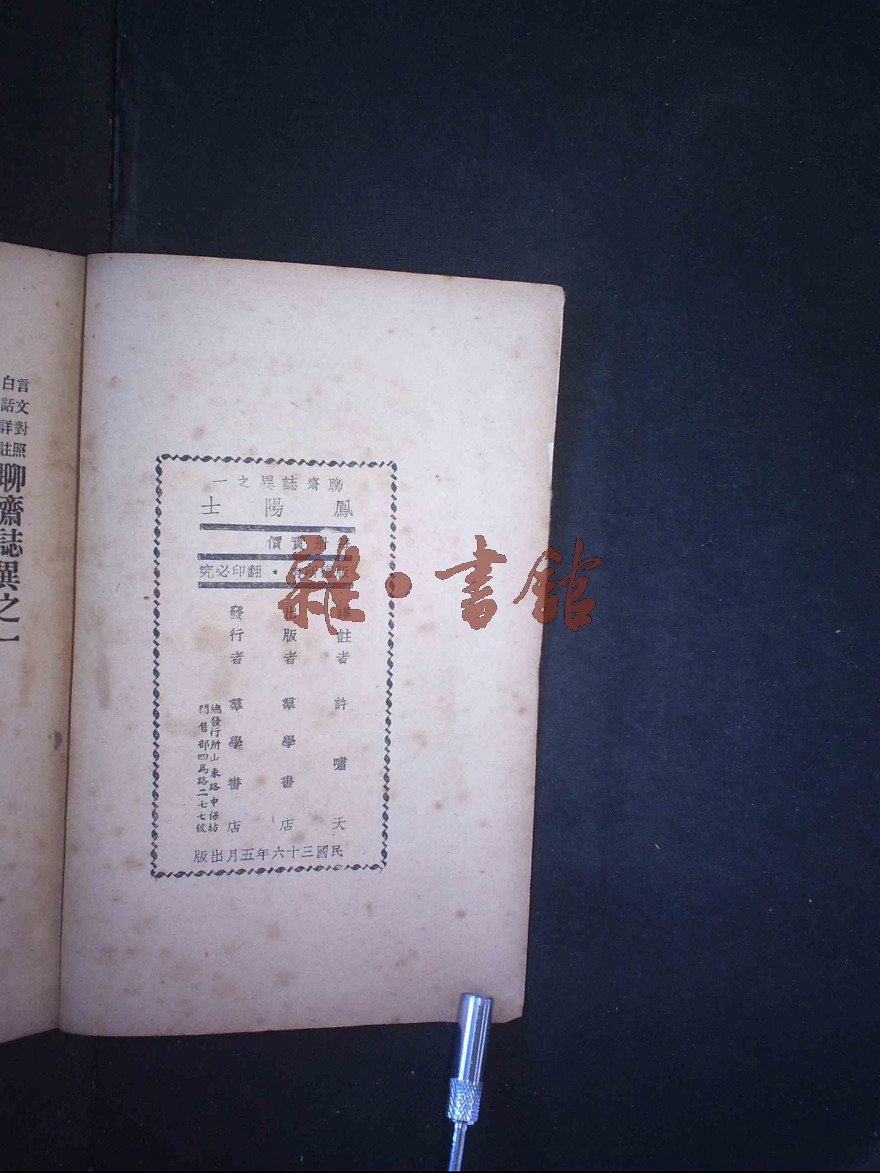 聊齋誌異之一
鳳陽士
册實價
版權所有・翻印必究
註者 許嘯天
出版者 羣學書店
發行者 羣學書店
總發行所山東路中保坊
門售部四馬路二七七號
民國三十六年五月出版
言文對照
白話詳註
聊齋誌異之一
雜・書館